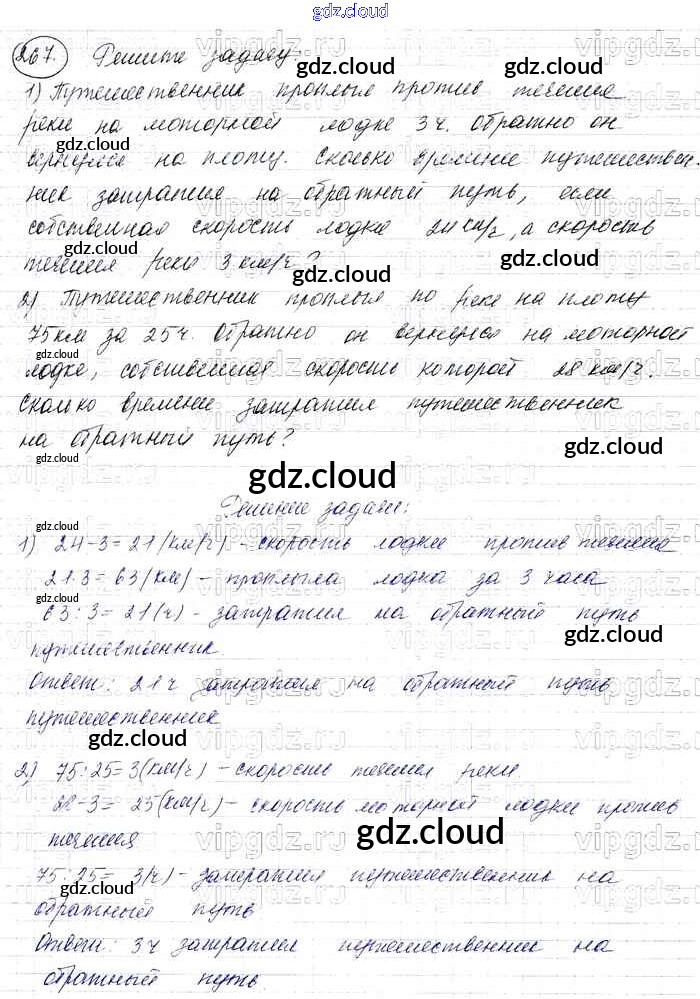 gdz.cloud
267. Решите задачу
gdz.cloud
1) Путешественник проплыл против течения
реки на моторной лодке 3 ч. Обратно он
вернулся на плоту. Сколько времени путешествен-
ник затратил на обратный путь, если
собственная скорость лодки 24 км/ч, а скорость
течения реки 3 км/ч?
gdz.cloud
gdz.cloud
2) Путешественник проплыл по реке на плоту
75 км за 25 ч. Обратно он вернулся на моторной
gdz.cloud
лодке, собственная скорость которой 28 км/ч.
gdz.cloud
Сколько времени затратил путешественник
на обратный путь?
gdz.cloud
gdz.cloud
gdz.cloud
Решение задачи:
gdz.cloud
1) 24-3=21 (км/ч) - скорость лодки против течения
21·3=63 (км) - проплыла лодка за 3 часа
gdz.cloud
63:3=21 (ч) - затратил на обратный путь
путешественник.
gdz.cloud
Ответ: 21 ч затратил на обратный путь
путешественник
gdz.cloud
2) 75:25=3 (км/ч) - скорость течения реки.
28-3=25 (км/ч) - скорость моторной лодки против
течения
gdz.cloud
75:25=3 (ч) - затратил путешественник на
gdz.cloud
обратный путь
Ответ: 3 ч затратил путешественник на
обратный путь.
gdz.cloud